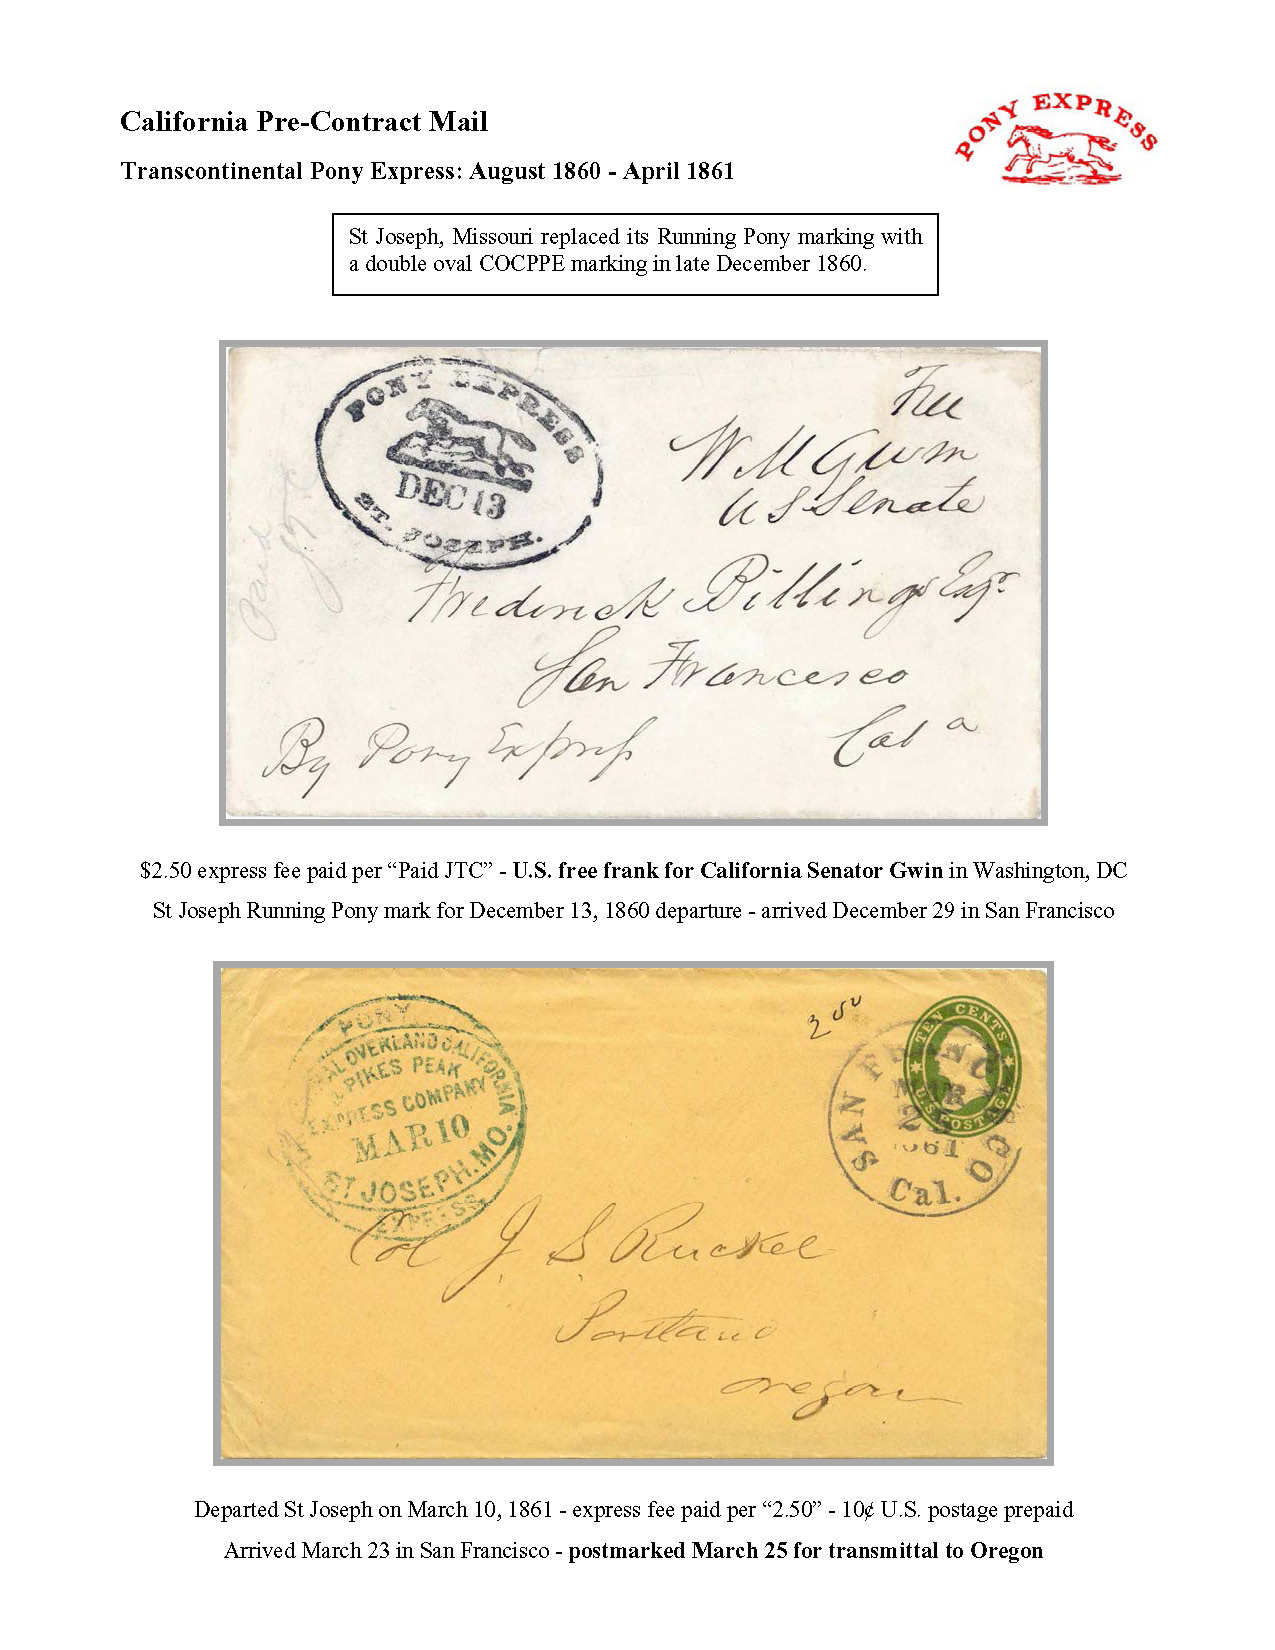 California Pre-Contract Mail
PONY EXPRESS
Transcontinental Pony Express: August 1860 - April 1861
St Joseph, Missouri replaced its Running Pony marking with
a double oval COCPPE marking in late December 1860.
PONY EXPRESS
DEC 13
ST. JOSEPH.
Free
W M Gwin
U S Senate
Paid
Frederick Billings Esqr.
San Francesco
Cal a
By Pony Express
$2.50 express fee paid per “Paid JTC” - U.S. free frank for California Senator Gwin in Washington, DC
St Joseph Running Pony mark for December 13, 1860 departure - arrived December 29 in San Francisco
PONY
AL OVERLAND CALIFORNIA
PIKES PEAK
EXPRESS COMPANY
MAR 10
ST JOSEPH. MO.
EXPRESS
2 50
TEN CENTS
U.S. POSTAGE
SAN FRANCISCO
MAR
25
1861
Cal.
Col J. S. Ruckel
Portland
Oregon
Departed St Joseph on March 10, 1861 - express fee paid per “2.50” - 10¢ U.S. postage prepaid
Arrived March 23 in San Francisco - postmarked March 25 for transmittal to Oregon